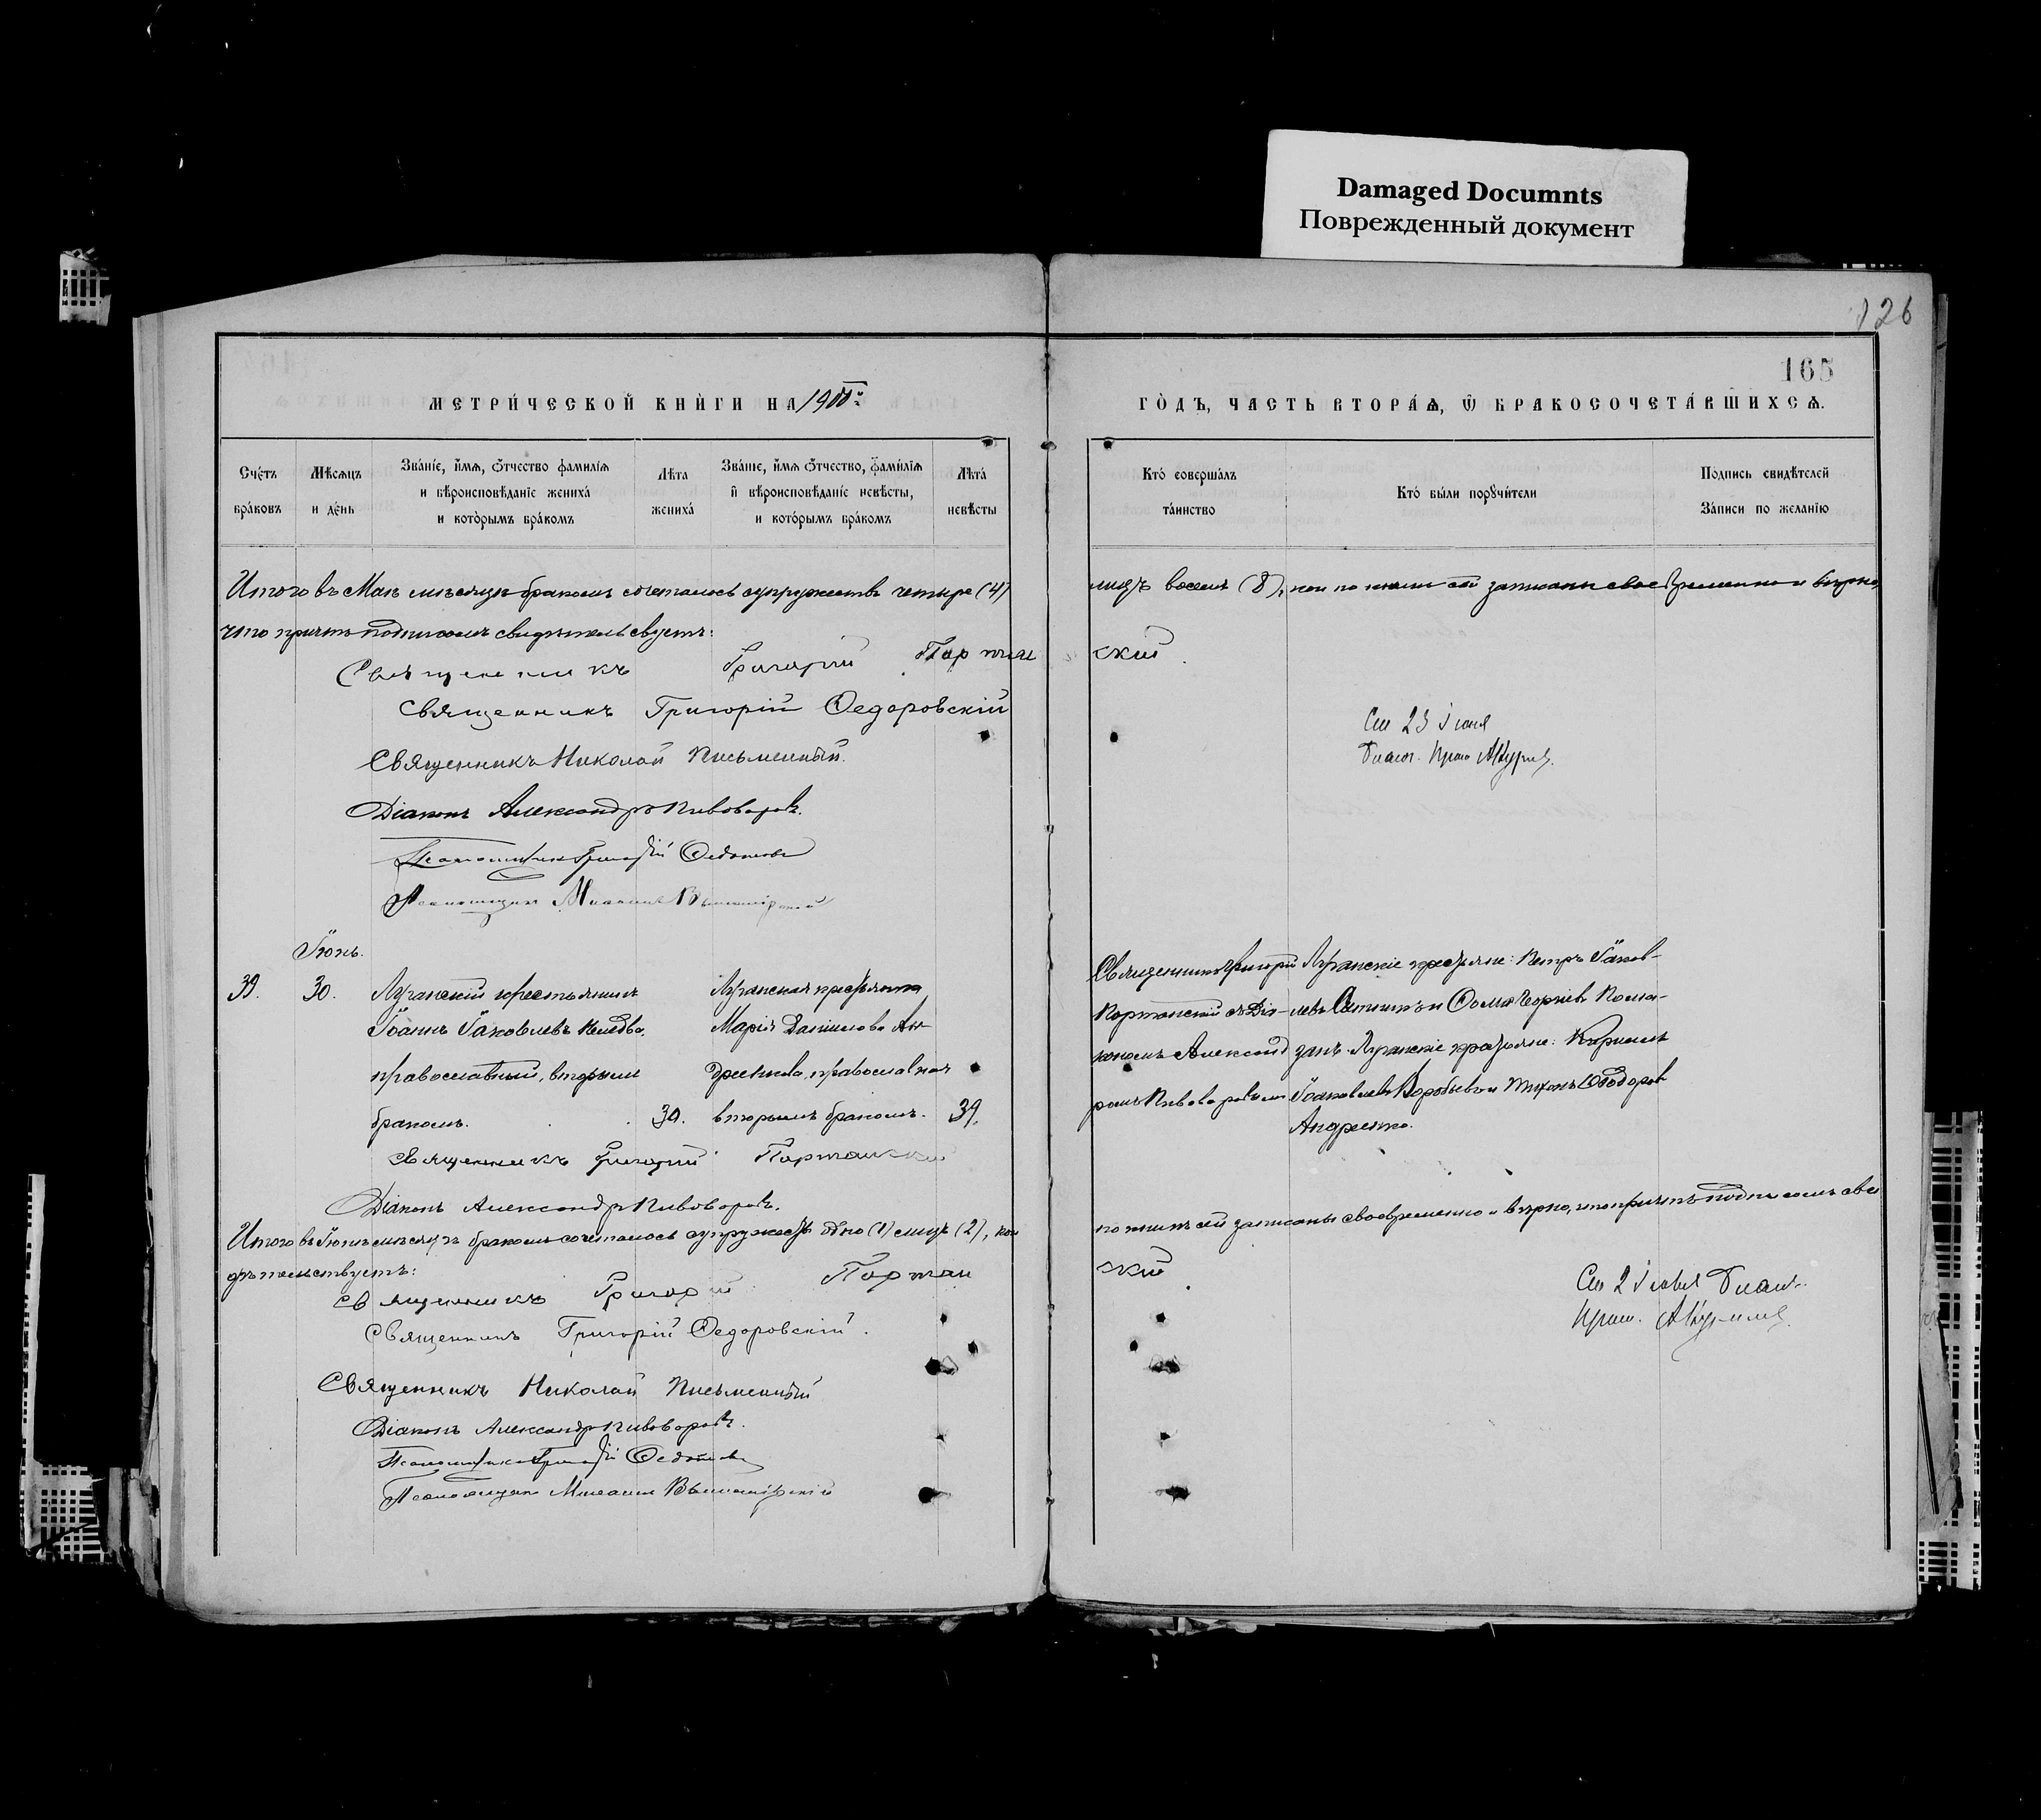 Damaged Documnts
Поврежденный документ
126
165
МЕТРИ́ЧЕСКОЙ КНИ́ГИ НА 1900
ГО́ДЪ, ЧАСТЬ ВТОРА́Ѧ, Ѿ БРАКОСОЧЕТА́ВШИХСѦ.
Сче́тъ бра́ковъ
Мѣсѧцъ и де́нь
Зва́нїе, и́мѧ, ѻ́тчество фамилїѧ и вѣроисповѣданїе жениха́ и кото́рымъ бра́комъ
Лѣта жениха́
Зва́нїе, и́мѧ ѻ́тчество, фами́лїѧ и вѣроисповѣданїе невѣсты, и кото́рымъ бра́комъ
Лѣта́ невѣсты
Кто́ соверша́лъ та́инство
Кто́ бы́ли порꙋчи́тели
Подпись свидѣтелей За́писи по желанїю
Итого въ Маѣ мѣсяцѣ бракомъ сочеталось супружествъ четыре (4)
лицъ восемь (8), кои по книгѣ сей записаны своевременно и вѣрно,
что причтъ подписомъ свидѣтельствуетъ:
Священникъ Григорій Портан
скій
Священникъ Григорій Ѳедоровскій
Священникъ Николай Письменный.
Діаконъ Александръ Пивоваровъ.
Псаломщикъ Григорій
Псаломщикъ Михаилъ
См 23 Іюня
Благ. Прот.
Іюнь.
39. 30.
Луганскій крестьянинъ
Іоаннъ Іаковлевъ
православный, вторымъ
бракомъ. 30.
Луганская крестьянка
Марія Даніилова Ан-
дреенкова, православная
вторымъ бракомъ. 39.
Священникъ Григорій
Портанскій съ Діа-
кономъ Александ
ромъ Пивоваровымъ
Луганскіе крестьяне: Петръ Іаков-
левъ и Ѳома Георгіевъ
Луганскіе крестьяне: Корнилъ
Іоакимовъ Воробьевъ и Тихонъ Ѳеодоровъ
Андреенко.
Священникъ Григорій Портанскій
Діаконъ Александръ Пивоваровъ.
Итого въ Іюнѣ мѣсяцѣ бракомъ сочеталось супружествъ одно (1) лицъ (2), кои
по книгѣ сей записаны своевременно и вѣрно, что причтъ подписомъ сви
дѣтельствуетъ:
Священникъ Григорій Портан
скій
Священникъ Григорій Ѳедоровскій.
Священникъ Николай Письменный
Діаконъ Александръ Пивоваровъ.
Псаломщикъ Григорій
Псаломщикъ Михаилъ
См 2 Іюля Благ.
Прот.